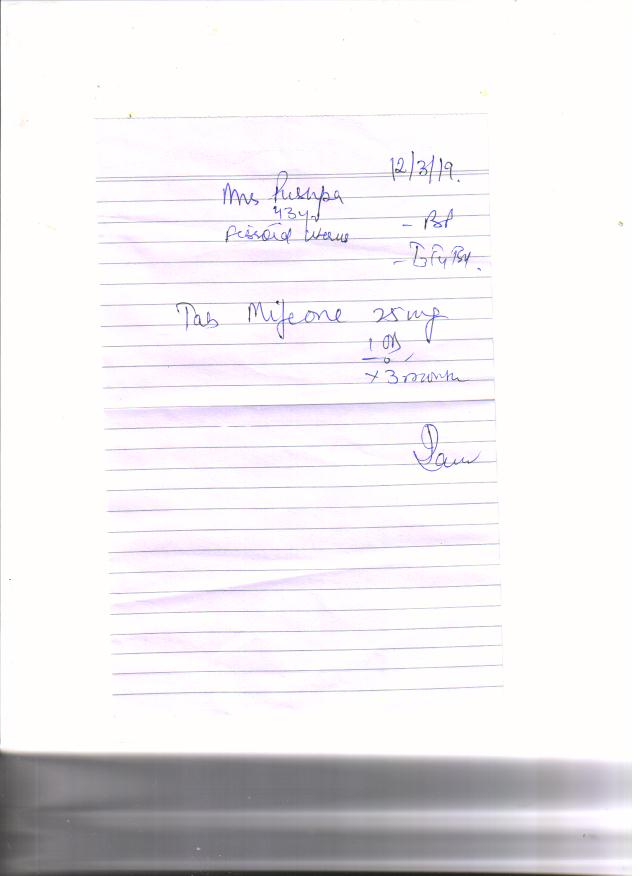 12/3/19.
Mrs Pushpa
43y
Fibroid Uterus
- BP
Tab Mifeone 25mg
1 OD
x 3 month